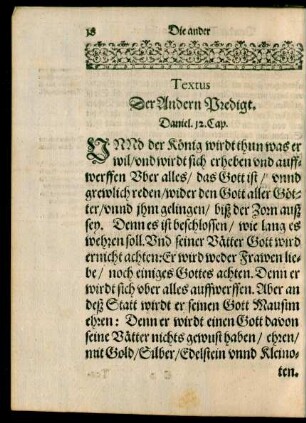 18 Die ander
Textus
Der Andern Predigt.
Daniel. 12. Cap.
UNNd der König wirdt thun was er
wil/ vnd wirdt sich erheben vnd auff-
werffen Vber alles/ das Gott ist/ vnnd
grewlich reden/ wider den Gott aller Göt-
ter/ vnnd jhm gelingen/ biß der Zorn auß
sey. Denn es ist beschlossen/ wie lang es
wehren soll. Vnd seiner Vätter Gott wird
er nicht achten: Er wird weder Frawen lie-
be/ noch einiges Gottes achten. Denn er
wirdt sich ober alles auffwerffen. Aber an
deß Statt wirdt er seinen Gott Mausim
ehren: Denn er wirdt einen Gott davon
seine Vätter nichts gewust haben/ ehren/
mit Gold/ Silber/ Edelstein vnnd Kleino-
ten.